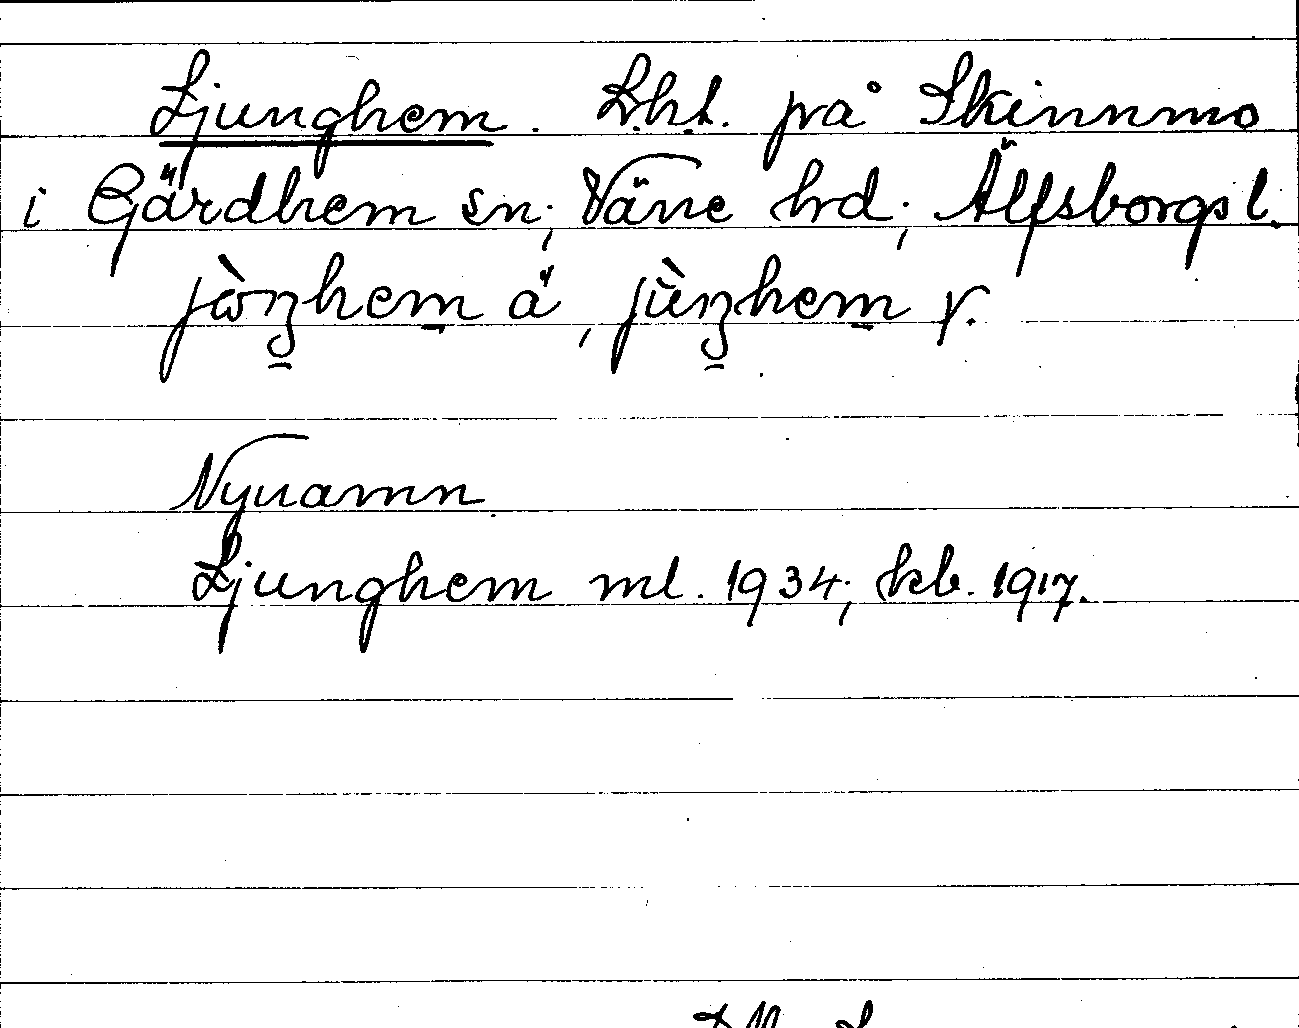 Ljunghem. L.ht. på Skinnmo
i Gärdhem sn; Väne hrd; Älfsborgs l.
jòŋhem ä, jùŋhem y.
Nynamn
Ljunghem ml. 1934; kb. 1917.